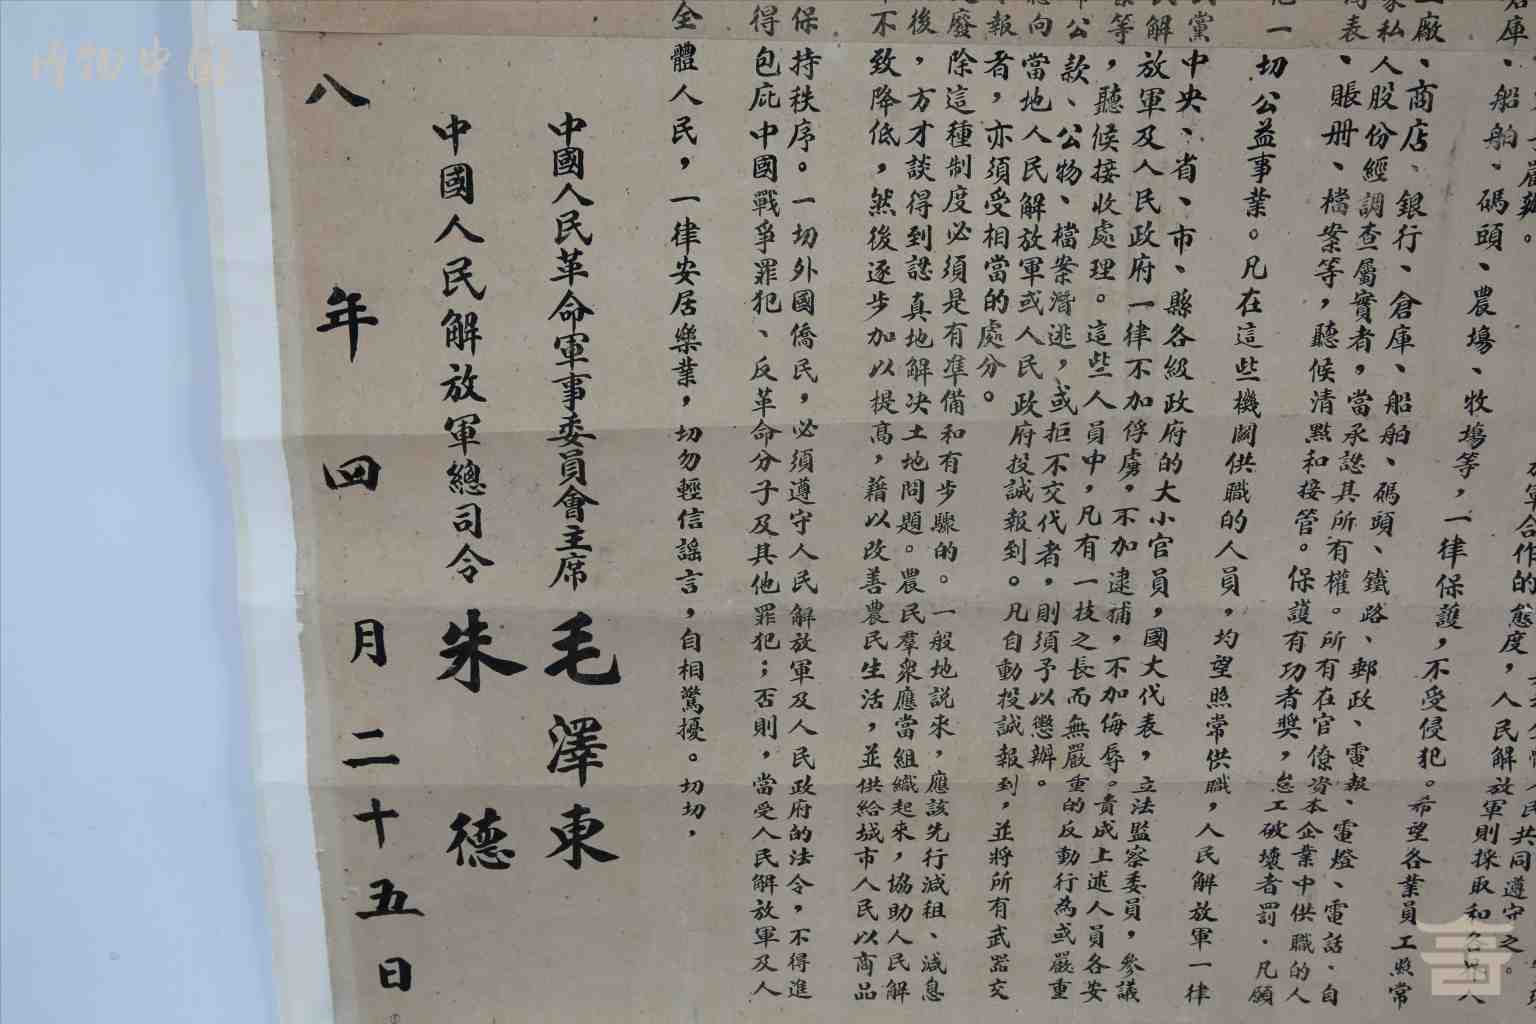 嚴辦。
放軍合作的態度,人民解放軍則採取和各界人
民共同遵守之。
倉庫、船舶、碼頭、農塲、牧塲等,一律保護,不受侵犯。希望各業員工照常
廠、商店、銀行、倉庫、船舶、碼頭、鐵路、郵政、電報、電燈、電話、自
家私人股份經調查屬實者,當承認其所有權。所有在官僚資本企業中供職的人
表、賬册、檔案等,聽候清點和接管。保護有功者獎,怠工破壞者罰。凡願
他一切公益事業。凡在這些機關供職的人員,均望照常供職,人民解放軍一律
民黨中央、省、市、縣各級政府的大小官員,國大代表,立法監察委員,參議
民解放軍及人民政府一律不加俘虜,不加逮捕,不加侮辱。責成上述人員各安
案等,聽候接收處理。這些人員中,凡有一技之長而無嚴重的反動行為或嚴重
公款、公物、檔案潛逃,或拒不交代者,則須予以懲辦。
應向當地人民解放軍或人民政府投誠報到。凡自動投誠報到,並將所有武器交
報者,亦須受相當的處分。
廢除這種制度必須是有準備和有步驟的。一般地說來,應該先行減租、減息
後,方才談得到認真地解决土地問題。農民羣衆應當組織起來,協助人民解
不致降低,然後逐步加以提高,藉以改善農民生活,並供給城市人民以商品
保持秩序。一切外國僑民,必須遵守人民解放軍及人民政府的法令,不得進
得包庇中國戰爭罪犯、反革命分子及其他罪犯;否則,當受人民解放軍及人
全體人民,一律安居樂業,切勿輕信謠言,自相驚擾。切切,
中國人民革命軍事委員會主席 毛澤東
中國人民解放軍總司令 朱德
八年四月二十五日
博物中國